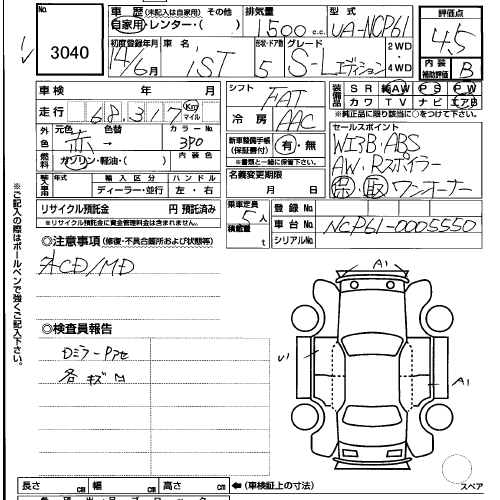 No.
3040
車歴 (未記入は自家用) その他
自家用・レンタ・( )
排気量
1500 c.c.
型式
UA-NCP61
評価点
4.5
内装補助評価
B
初度登録年月
14/6月
車名
iST
形状・ドア数
5
グレード
S-Lエディション
2WD
4WD
車検 年 月
シフト
FAT
装備品
SR 純AW PS PW
カワ TV ナビ エアB
※純正品に限り該当に○をつけて下さい。
走行 68,317 Km マイル
冷房
AAC
セールスポイント
WエアB・ABS
AW・Rスポイラー
保・取 ワンオーナー
外色 元色 色替 カラーNo.
赤→
3P0
新車整備手帳(保証書付)
有・無
※書類と一緒に保管して下さい。
燃料 ガソリン・軽油・( )
内装色
輸入車 年式 輸入区分 ハンドル
ディーラー・並行 左・右
名義変更期限
月 日
リサイクル預託金 円 預託済み
※リサイクル預託金に資金管理料金は含まれません。
乗車定員
5人
積載量
t
登録No.
車台No.
NCP61-0005550
シリアルNo.
◎注意事項 (修復・不具合箇所および状態等)
外CD/MD
◎検査員報告
Dミラー
各キズ
A1
A1
スペア
※ご記入の際はボールペンで強くご記入下さい。
長さ cm 幅 cm 高さ cm ←(車検証上の寸法)